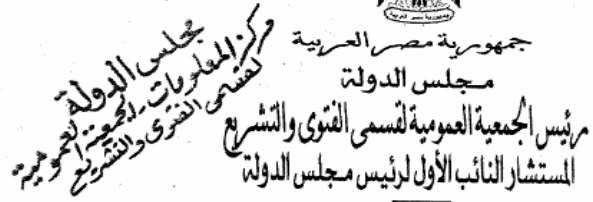 جمهورية مصر العربية
مجلس الدولة
رئيس الجمعية العمومية لقسمى الفتوى والتشريع
المستشار النائب الأول لرئيس مجلس الدولة
مجلس الدولة
مركز المعلومات - الجمعية العمومية
لقسمى الفتوى والتشريع